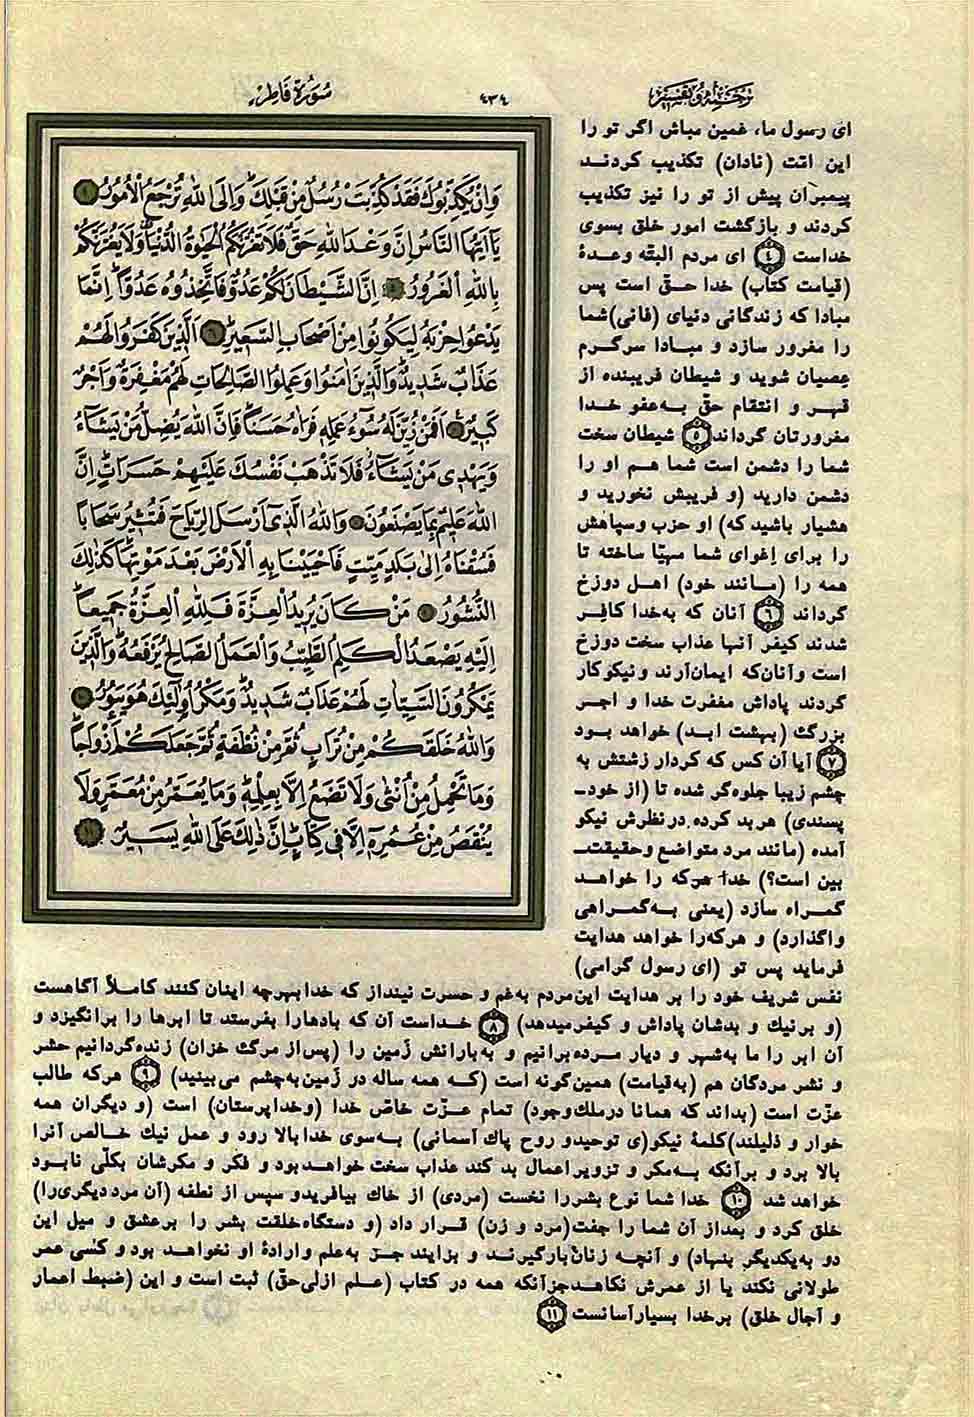 ترجمه و تفسیر
٤٣٤
سُورَةُ فَاطِرٍ
وَاِنْ يُكَذِّبُوكَ فَقَدْ كُذِّبَتْ رُسُلٌ مِنْ قَبْلِكَ وَاِلَى اللهِ تُرْجَعُ الْاُمُورُ
يَا اَيُّهَا النَّاسُ اِنَّ وَعْدَ اللهِ حَقٌّ فَلَا تَغُرَّنَّكُمُ الْحَيٰوةُ الدُّنْيَا وَلَا يَغُرَّنَّكُمْ
بِاللهِ الْغَرُورُ ٥ اِنَّ الشَّيْطَانَ لَكُمْ عَدُوٌّ فَاتَّخِذُوهُ عَدُوًّا اِنَّمَا
يَدْعُوا حِزْبَهُ لِيَكُونُوا مِنْ اَصْحَابِ السَّعِيرِ ٦ اَلَّذِينَ كَفَرُوا لَهُمْ
عَذَابٌ شَدِيدٌ وَالَّذِينَ اٰمَنُوا وَعَمِلُوا الصَّالِحَاتِ لَهُمْ مَغْفِرَةٌ وَاَجْرٌ
كَبِيرٌ اَفَمَنْ زُيِّنَ لَهُ سُوٓءُ عَمَلِهِ فَرَاٰهُ حَسَنًا فَاِنَّ اللهَ يُضِلُّ مَنْ يَشَآءُ
وَيَهْدِي مَنْ يَشَآءُ فَلَا تَذْهَبْ نَفْسُكَ عَلَيْهِمْ حَسَرَاتٍ اِنَّ
اللهَ عَلِيمٌ بِمَا يَصْنَعُونَ وَاللهُ الَّذِيٓ اَرْسَلَ الرِّيَاحَ فَتُثِيرُ سَحَابًا
فَسُقْنَاهُ اِلٰى بَلَدٍ مَيِّتٍ فَاَحْيَيْنَا بِهِ الْاَرْضَ بَعْدَ مَوْتِهَا كَذٰلِكَ
النُّشُورُ مَنْ كَانَ يُرِيدُ الْعِزَّةَ فَلِلّٰهِ الْعِزَّةُ جَمِيعًا
اِلَيْهِ يَصْعَدُ الْكَلِمُ الطَّيِّبُ وَالْعَمَلُ الصَّالِحُ يَرْفَعُهُ وَالَّذِينَ
يَمْكُرُونَ السَّيِّئَاتِ لَهُمْ عَذَابٌ شَدِيدٌ وَمَكْرُ اُولٰئِكَ هُوَ يَبُورُ ١٠
وَاللهُ خَلَقَكُمْ مِنْ تُرَابٍ ثُمَّ مِنْ نُطْفَةٍ ثُمَّ جَعَلَكُمْ اَزْوَاجًا
وَمَا تَحْمِلُ مِنْ اُنْثٰى وَلَا تَضَعُ اِلَّا بِعِلْمِهِ وَمَا يُعَمَّرُ مِنْ مُعَمَّرٍ وَلَا
يُنْقَصُ مِنْ عُمُرِهِٓ اِلَّا فِي كِتَابٍ اِنَّ ذٰلِكَ عَلَى اللهِ يَسِيرٌ ١١
ای رسول ما، غمین مباش اگر تو را
این امّت (نادان) تکذیب کردند
پیمبران پیش از تو را نیز تکذیب
کردند و بازگشت امور خلق بسوی
خداست ٤ ای مردم البتّه وعدهٔ
(قیامت کتاب) خدا حقّ است پس
مبادا که زندگانی دنیای (فانی) شما
را مغرور سازد و مبادا سرگرم
عصیان شوید و شیطان فریبنده از
قهر و انتقام حقّ به‌عفو خدا
مغرورتان گرداند ٥ شیطان سخت
شما را دشمن است شما هم او را
دشمن دارید (و فریبش نخورید و
هشیار باشید که) او حزب و سپاهش
را برای اِغوای شما مهیّا ساخته تا
همه را (مانند خود) اهل دوزخ
گرداند ٦ آنان که به‌خدا کافِر
شدند کیفر آنها عذاب سخت دوزخ
است و آنان‌که ایمان‌آرند و نیکوکار
گردند پاداش مغفرت خدا و اجر
بزرگ (بهشت ابد) خواهد بود
٧ آیا آن کس که کردار زشتش به
چشم زیبا جلوه‌گر شده تا (از خود-
پسندی) هر بد کرده در نظرش نیکو
آمده (مانند مرد متواضع و حقیقت-
بین است؟) خدا هرکه را خواهد
گمراه سازد (یعنی به‌گمراهی
واگذارد) و هرکه‌را خواهد هدایت
فرماید پس تو (ای رسول گرامی)
نفس شریف خود را بر هدایت این‌مردم به‌غم و حسرت نینداز که خدا بهرچه اینان کنند کاملاً آگاهست
(و برنیك و بدشان پاداش و کیفر میدهد) ٨ خداست آن که بادها را بفرستد تا ابرها را برانگیزد و
آن ابر را ما به‌شهر و دیار مرده برانیم و به‌بارانش زمین را (پس‌از مرگ خزان) زنده‌گردانیم حشر
و نشر مردگان هم (به‌قیامت) همین‌گونه است (که همه ساله در زمین به‌چشم می‌بینید) ٩ هرکه طالب
عزّت است (بداند که همانا در ملك وجود) تمام عزّت خاصّ خدا (و خداپرستان) است (و دیگران همه
خوار و ذلیلند) کلمهٔ نیکو(ی توحید و روح پاك آسمانی) به‌سوی خدا بالا رود و عمل نیك خالص آنرا
بالا برد و بر آنکه به‌مکر و تزویر اعمال بد کند عذاب سخت خواهد بود و فکر و مکرشان بکلّی نابود
خواهد شد ١٠ خدا شما نوع بشر را نخست (مردی) از خاك بیافرید و سپس از نطفه (آن مرد دیگری را)
خلق کرد و بعد از آن شما را جفت (مرد و زن) قرار داد (و دستگاه خلقت بشر را بر عشق و میل این
دو به‌یکدیگر بنهاد) و آنچه زنان بارگیرند و بزایند جز به‌علم و ارادهٔ او نخواهد بود و کسی عمر
طولانی نکند یا از عمرش نکاهد جز آنکه همه در کتاب (علم ازلی حقّ) ثبت است و این (ضبط اعمار
و آجال خلق) بر خدا بسیار آسانست ١١